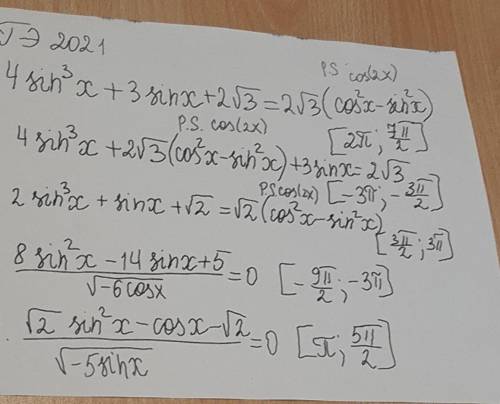 ГЭ 2021
P.S. cos(2x)
4 sin³x + 3 sinx + 2√3 = 2√3 (cos²x - sin²x)
P.S. cos(2x) [2π; 7π/2]
4 sin³x + 2√3 (cos²x - sin²x) + 3 sinx = 2√3
P.S. cos(2x) [-3π; -3π/2]
2 sin³x + sinx + √2 = √2 (cos²x - sin²x)
[3π/2; 3π]
(8 sin²x - 14 sinx + 5)/√(-6cosx) = 0 [-9π/2; -3π]
(√2 sin²x - cosx - √2)/√(-5sinx) = 0 [π; 5π/2]